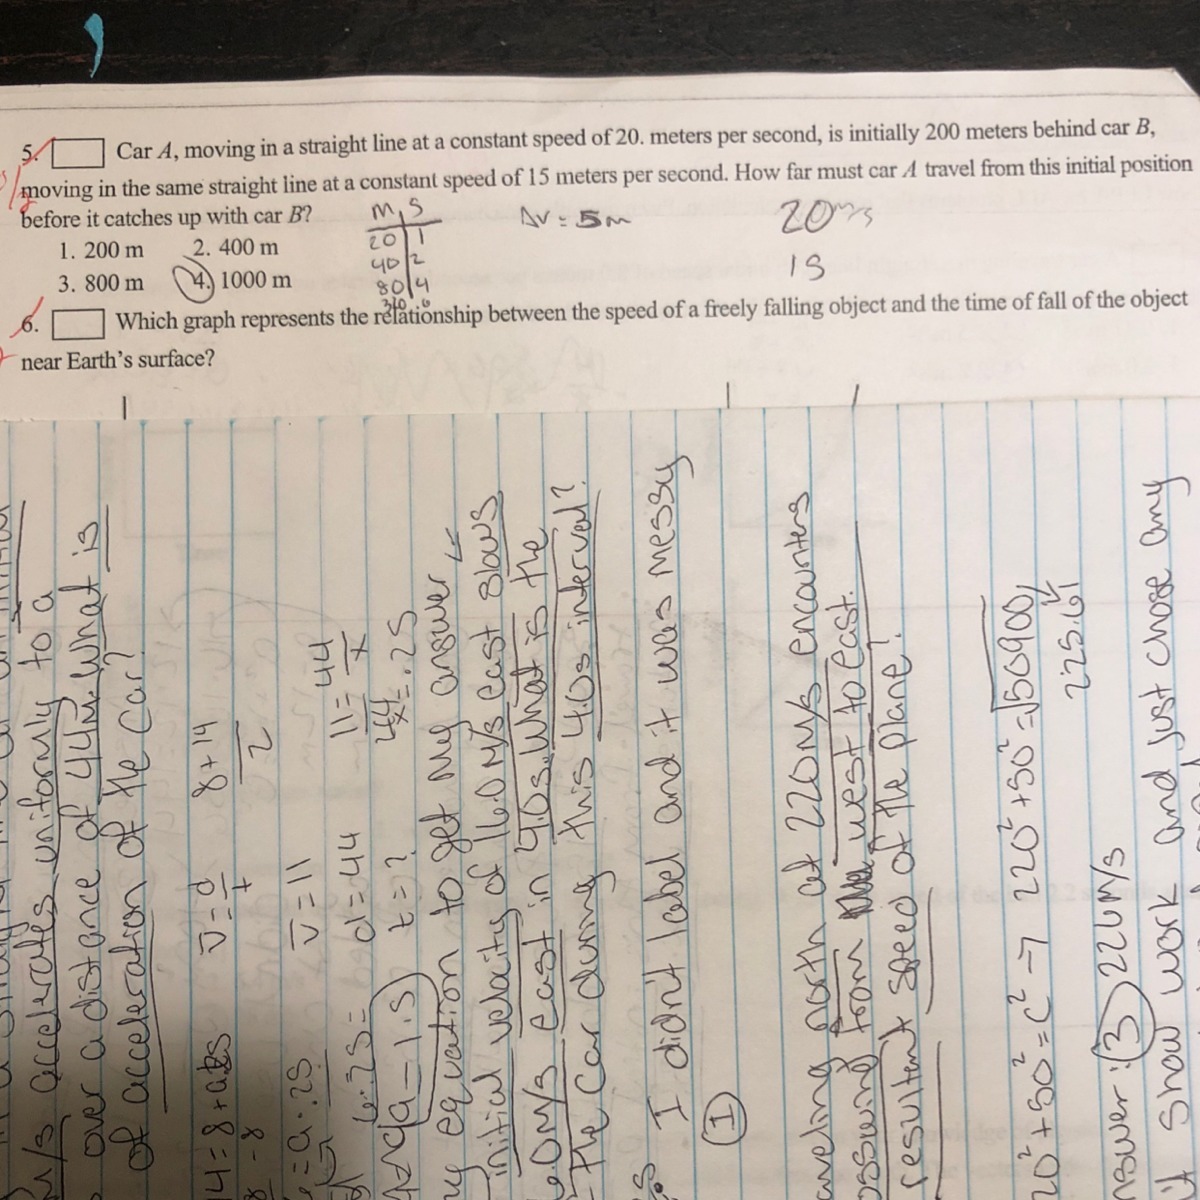 5. Car A, moving in a straight line at a constant speed of 20. meters per second, is initially 200 meters behind car B,
moving in the same straight line at a constant speed of 15 meters per second. How far must car A travel from this initial position
before it catches up with car B?
M, S
20 1
40 2
80 4
ΔV = 5m
20m/s
1S
1. 200 m 2. 400 m
3. 800 m 4. 1000 m
6. Which graph represents the relationship between the speed of a freely falling object and the time of fall of the object
near Earth's surface?
m/s accelerates uniformly to a
over a distance of 44m. What is
of acceleration of the car?
14 = 8 + a
- 8
v = d/t
8 + 14
2
v = 11
11 = 44/x
d = 44
t = ?
a = 1.5
equation to get my answer
initial velocity of 16.0 m/s east slows
6.0 m/s east in 4.0s. What is the
the car during this 4.0s interval?
I didn't label and it was messy
1
aveling north at 220m/s encounters
from west to east.
resultant speed of the plane?
20² + 50² = c² → 220² + 50² = √50900
225.61
nswer: 3) 226 m/s
show work and just chose any